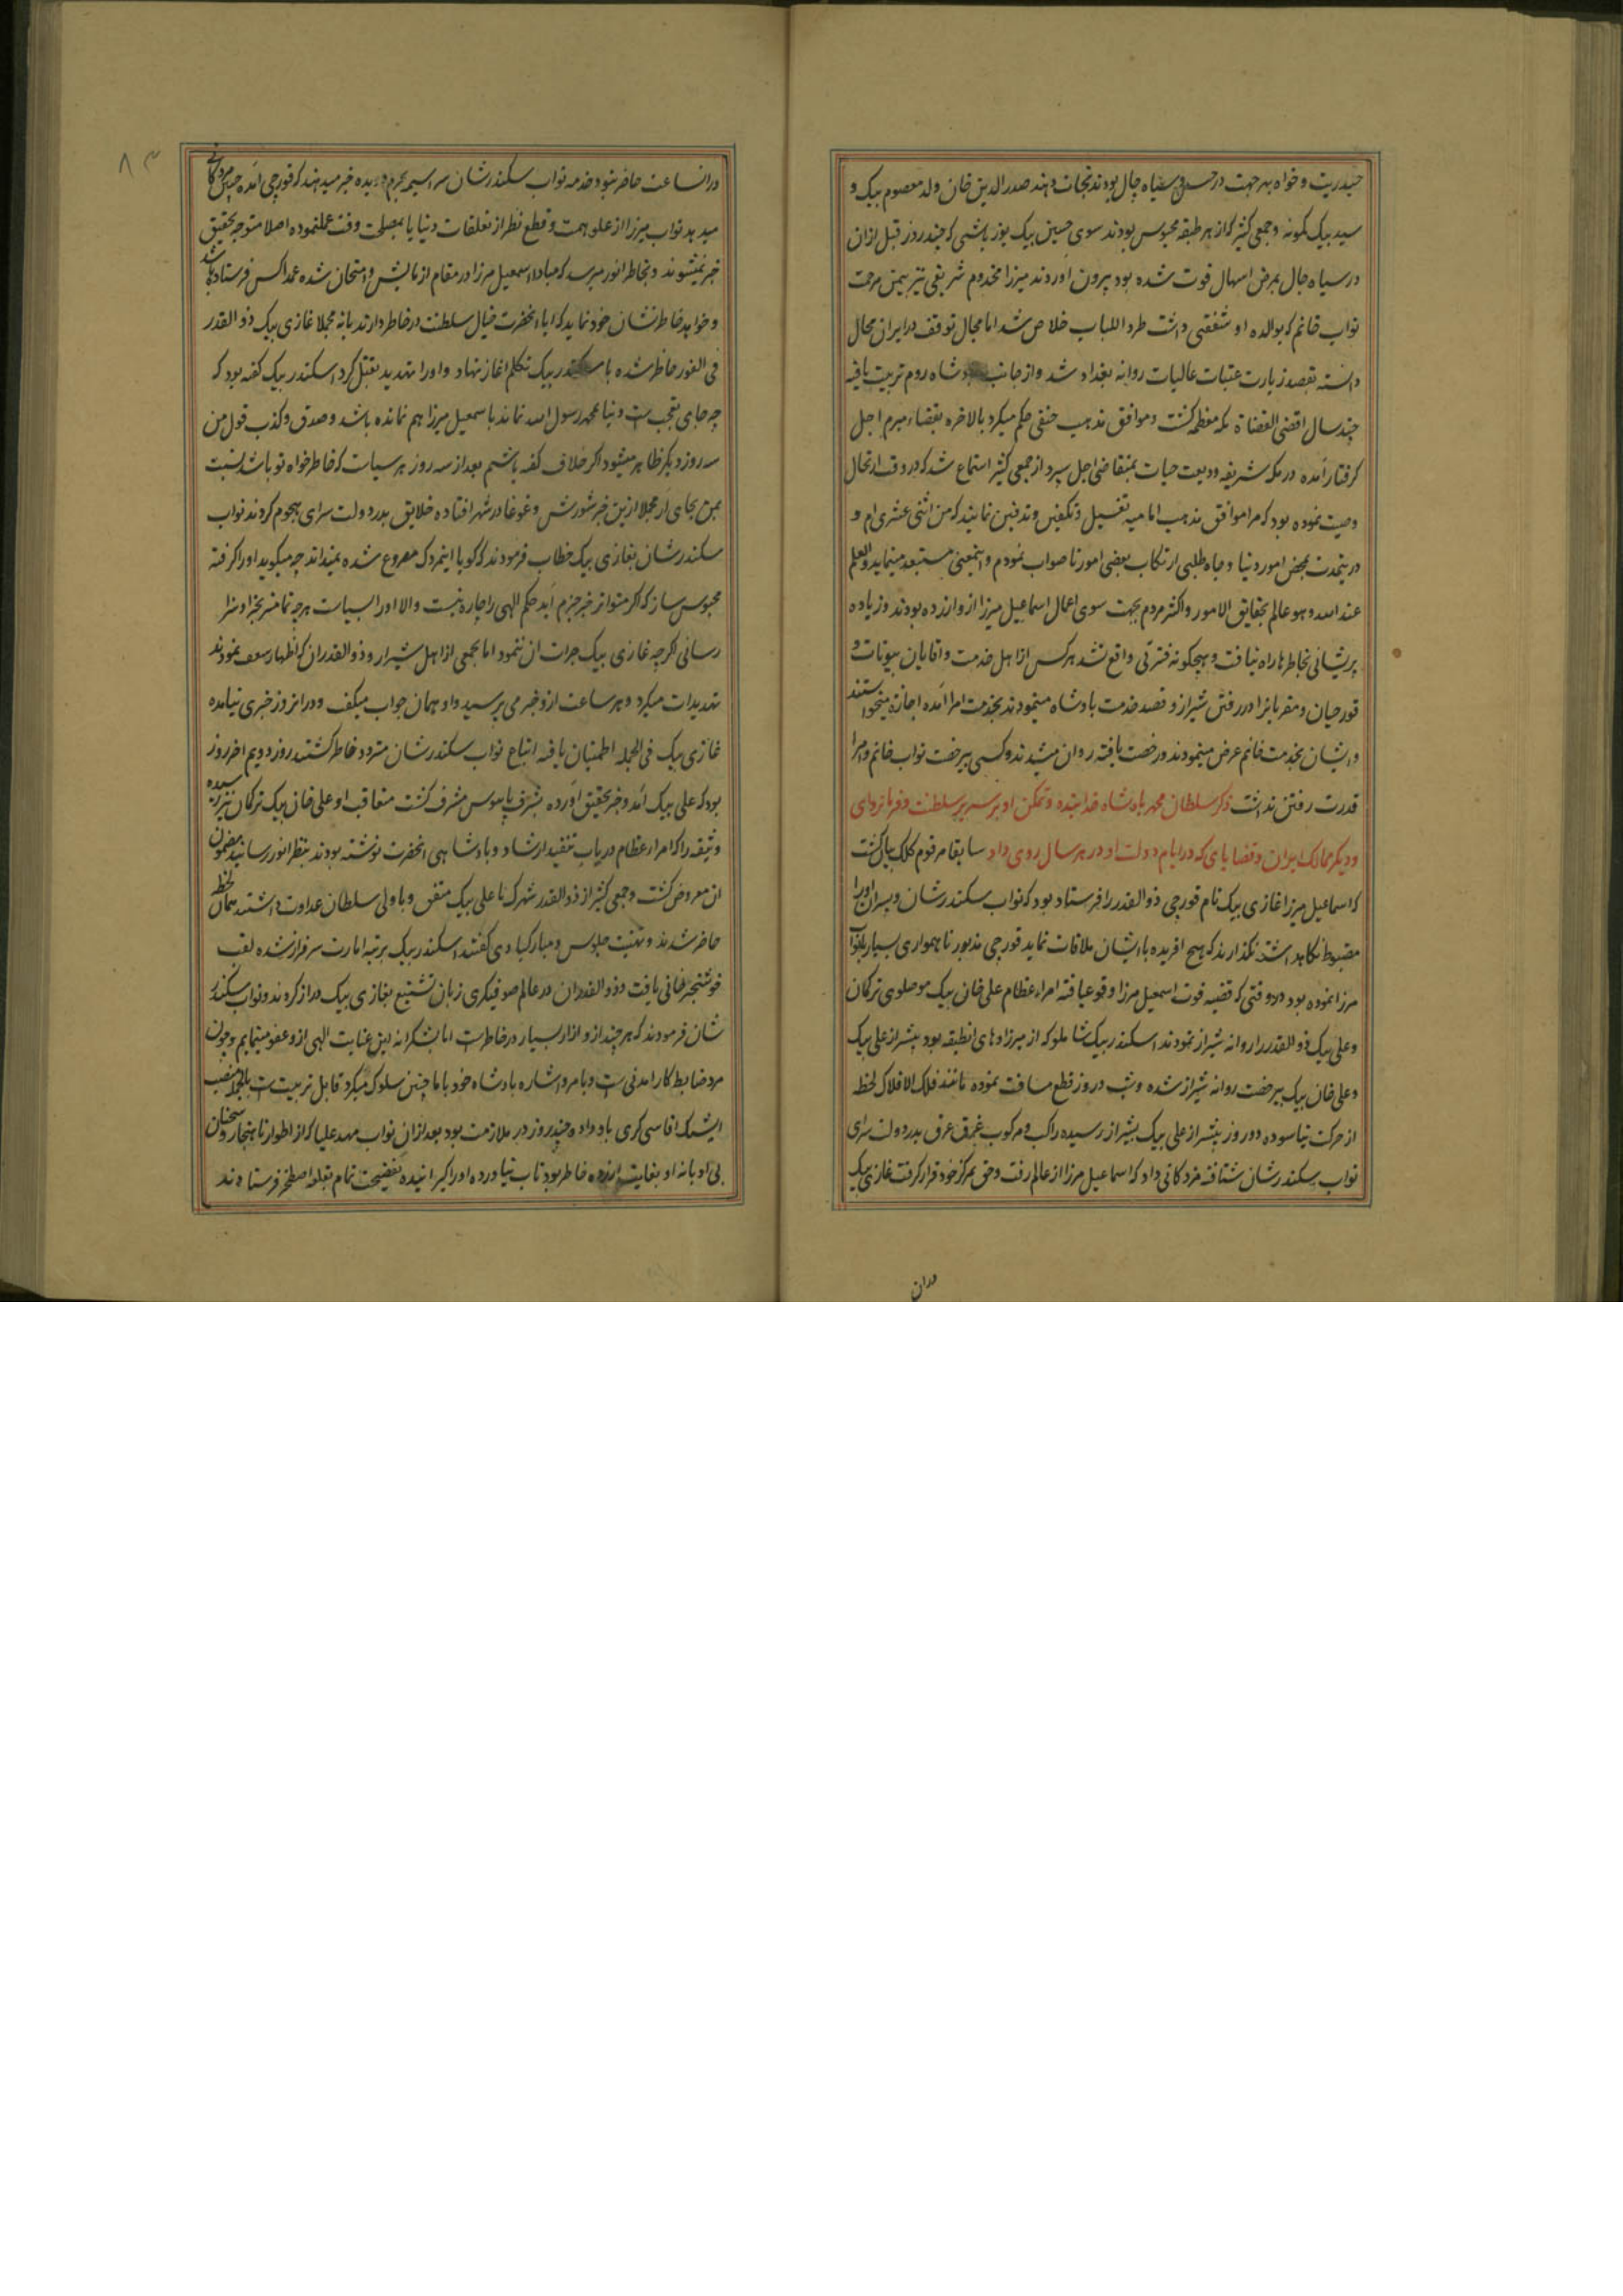 حیدریت و خواه بهر جهت در حبس و سیاه چال بودند نجات دهند صدرالدین خان ولد معصوم بیک و
سید بیک کمونه و جمعی کثیر که از هر طبقه محبوس بودند سوی حسین بیک یوزباشی که چند روز قبل ازان
در سیاه چال بمرض اسهال فوت شده بود بیرون اوردند میرزا مخدوم شریفی نیز بیمن مرحمت
نواب خانم که بوالده او شفقتی داشت طرد اللباب خلاص شد اما مجال توقف در ایران محال
دانسته بقصد زیارت عتبات عالیات روانه بغداد شد و از جانب پادشاه روم تربیت یافته
چند سال اقضی القضاة مکه معظمه کشت و موافق مذهب حنفی حکم میکرد بالاخره بقضاء مبرم اجل
کرفتار آمده در مکه شریفه ودیعت حیات بمتقاضی اجل سپرد از جمعی کثیر استماع شد که در وقت ارتحال
وصیت نموده بود که مرا موافق مذهب امامیه تغسیل و تکفین و تدفین نمایند که من اثنی عشری ام و
درینمدت بمحض امور دنیا و جاه طلبی ارتکاب بعضی امور ناصواب نمودم و اینمعنی مستبعد مینماید والعلم
عند الله و هو عالم بحقایق الامور و اکثر مردم بجهت سوی اعمال اسماعیل میرزا ازو ازرده بودند و زیاده
پریشانی بخاطرها راه نیافت و هیچکونه فترتی واقع نشد هر کس از اهل خدمت و اقایان بیوتات و
قورچیان و مقربانرا در رفتن شیراز و قصد خدمت پادشاه مینمودند بخدمت امرا آمده اجازه میخواستند
و ایشان بخدمت خانم عرض مینمودند و رخصت یافته روان میشدند و کسی بیرخصت نواب خانم و امرا
قدرت رفتن نداشت ذکر سلطان محمد پادشاه خدابنده و تمکن او بر سریر سلطنت و فرمانروای
و دیکر ممالک ایران و قضایای که در ایام دولت او در هر سال روی داد سابقا مرقوم کلک بیان کشت
که اسماعیل میرزا غازی بیک نام قورچی ذوالقدر را فرستاده بود که نواب سکندرشان و پسران او را
مضبوط نکاهداشته نکذارند که هیچ افریده با ایشان ملاقات نماید قورچی مذبور ناهمواری بسیار بانواب
میرزا نموده بود در وقتی که قضیه فوت اسمعیل میرزا وقوع یافته امراء عظام علی خان بیک موصلوی ترکمان
و علی بیک ذوالقدر را روانه شیراز نمودند اسکندر بیک شاملو که از میرزادهای انطبقه بود پیشتر از علی بیک
و علی خان بیک بیرخصت روانه شیراز شده و شب و روز قطع مسافت نموده مانند فلک الافلاک لحظه
از حرکت نیاسوده دو روز پیشتر از علی بیک بشیراز رسیده راکب و مرکوب غرق عرق بدر دولت سرای
نواب سکندرشان شتافته مژدکانی داد که اسماعیل میرزا از عالم رفت و حق بمرکز خود قرار کرفت غازی بیک
دران
۸۳
در انساعت حاضر نبود خدمه نواب سکندرشان سراسیمه بحرم دویده خبر میدهند که قورچی آمده چنین مژدکانی
میدهد نواب میرزا از علو همت و قطع نظر از تعلقات دنیا یا بمصلحت وقت عمل نموده اصلا متوجه تحقیق
خبر نمیشوند و بخاطر انور میرسد که مبادا اسمعیل میرزا در مقام ازمایش و امتحان شده عمدا کس فرستاده باشد
و خواهد خاطرنشان خود نماید که ایا انحضرت خیال سلطنت در خاطر دارند یا نه مجملا غازی بیک ذوالقدر
فی الفور حاضر شده با سکندر بیک تکلم اغاز نهاد و او را تهدید بقتل کرد اسکندر بیک کفته بود که
چه جای تعجب است دنیا بمحمد رسول الله نماند با سمعیل میرزا هم نمانده باشد و صدق و کذب قول من
سه روز دیکر ظاهر میشود اکر خلاف کفته باشم بعد از سه روز هر سیاست که خاطرخواه تو باشد نسبت
بمن بجای آر مجملا ازین خبر شورش و غوغا در شهر افتاده خلایق بدر دولت سرای هجوم کردند نواب
سکندرشان بغازی بیک خطاب فرمودند که کویا اینمردک مصروع شده نمیداند چه میکوید او را کرفته
محبوس ساز که اکر متواتر خبر جزم آید حکم الهی را چاره نیست والا او را سیاست هر چه تمامتر بجزا و سزا
رسانی اکرچه غازی بیک جرات ان ننمود اما بجمعی از اهل شیراز و ذوالقدران که اظهار شعف نمودند
تهدیدات میکرد و هر ساعت ازو خبر می پرسید و او همان جواب میکفت و در انروز خبری نیامده
غازی بیک فی الجمله اطمینان یافته اتباع نواب سکندرشان متردد خاطر کشتند روز دویم اخر روز
بود که علی بیک آمد و خبر تحقیق آورده بشرف پایبوس مشرف کشت متعاقب او علی خان بیک ترکمان نیز رسیده
وثیقه را که امراء عظام در باب تنفیذ ارشاد و پادشاهی انحضرت نوشته بودند بنظر انور رسانید مضمون
ان معروض کشت و جمعی کثیر از ذوالقدر شهرک با علی بیک متفق و با ولی سلطان عداوت داشتند همان لحظه
حاضر شدند و تهنیت جلوس و مبارکبادی کفتند اسکندر بیک برتبه امارت سرافراز شده لقب
خوشخبر خانی یافت و ذوالقدران در عالم صوفیکری زبان تشنیع بغازی بیک دراز کردند و نواب سکندر
شان فرمودند که هر چند ازو ازار بسیار در خاطر است اما بشکرانه این عنایت الهی ازو عفو مینمایم و چون
مرد ضابط کار امدنی است و بامر و اشاره پادشاه خود با ما چنین سلوک میکرد قابل تربیت است بالجمله منصب
ایشک اقاسی کری باو داده چند روز در ملازمت بود بعد ازان نواب مهد علیا که از اطوار ناهنجار و سخنان
بی ادبانه او بغایت ازرده خاطر بود تاب نیاورده او را کیرانیده بفضیحت تمام بقلعه اصطخر فرستادند